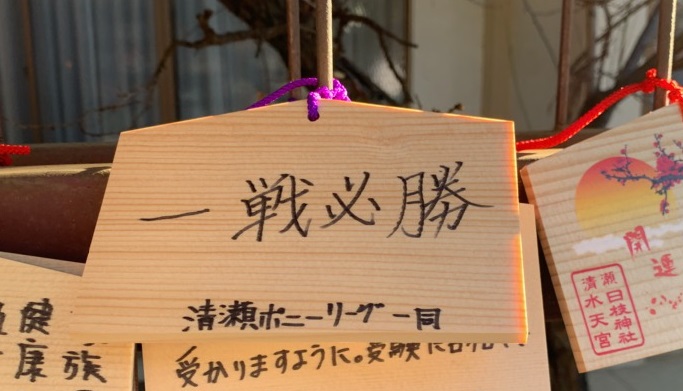 一戦必勝
清瀬ポニーリーグ一同
受かりますように。受験
健
康 族
開
運
清瀬
水日枝神社
天宮